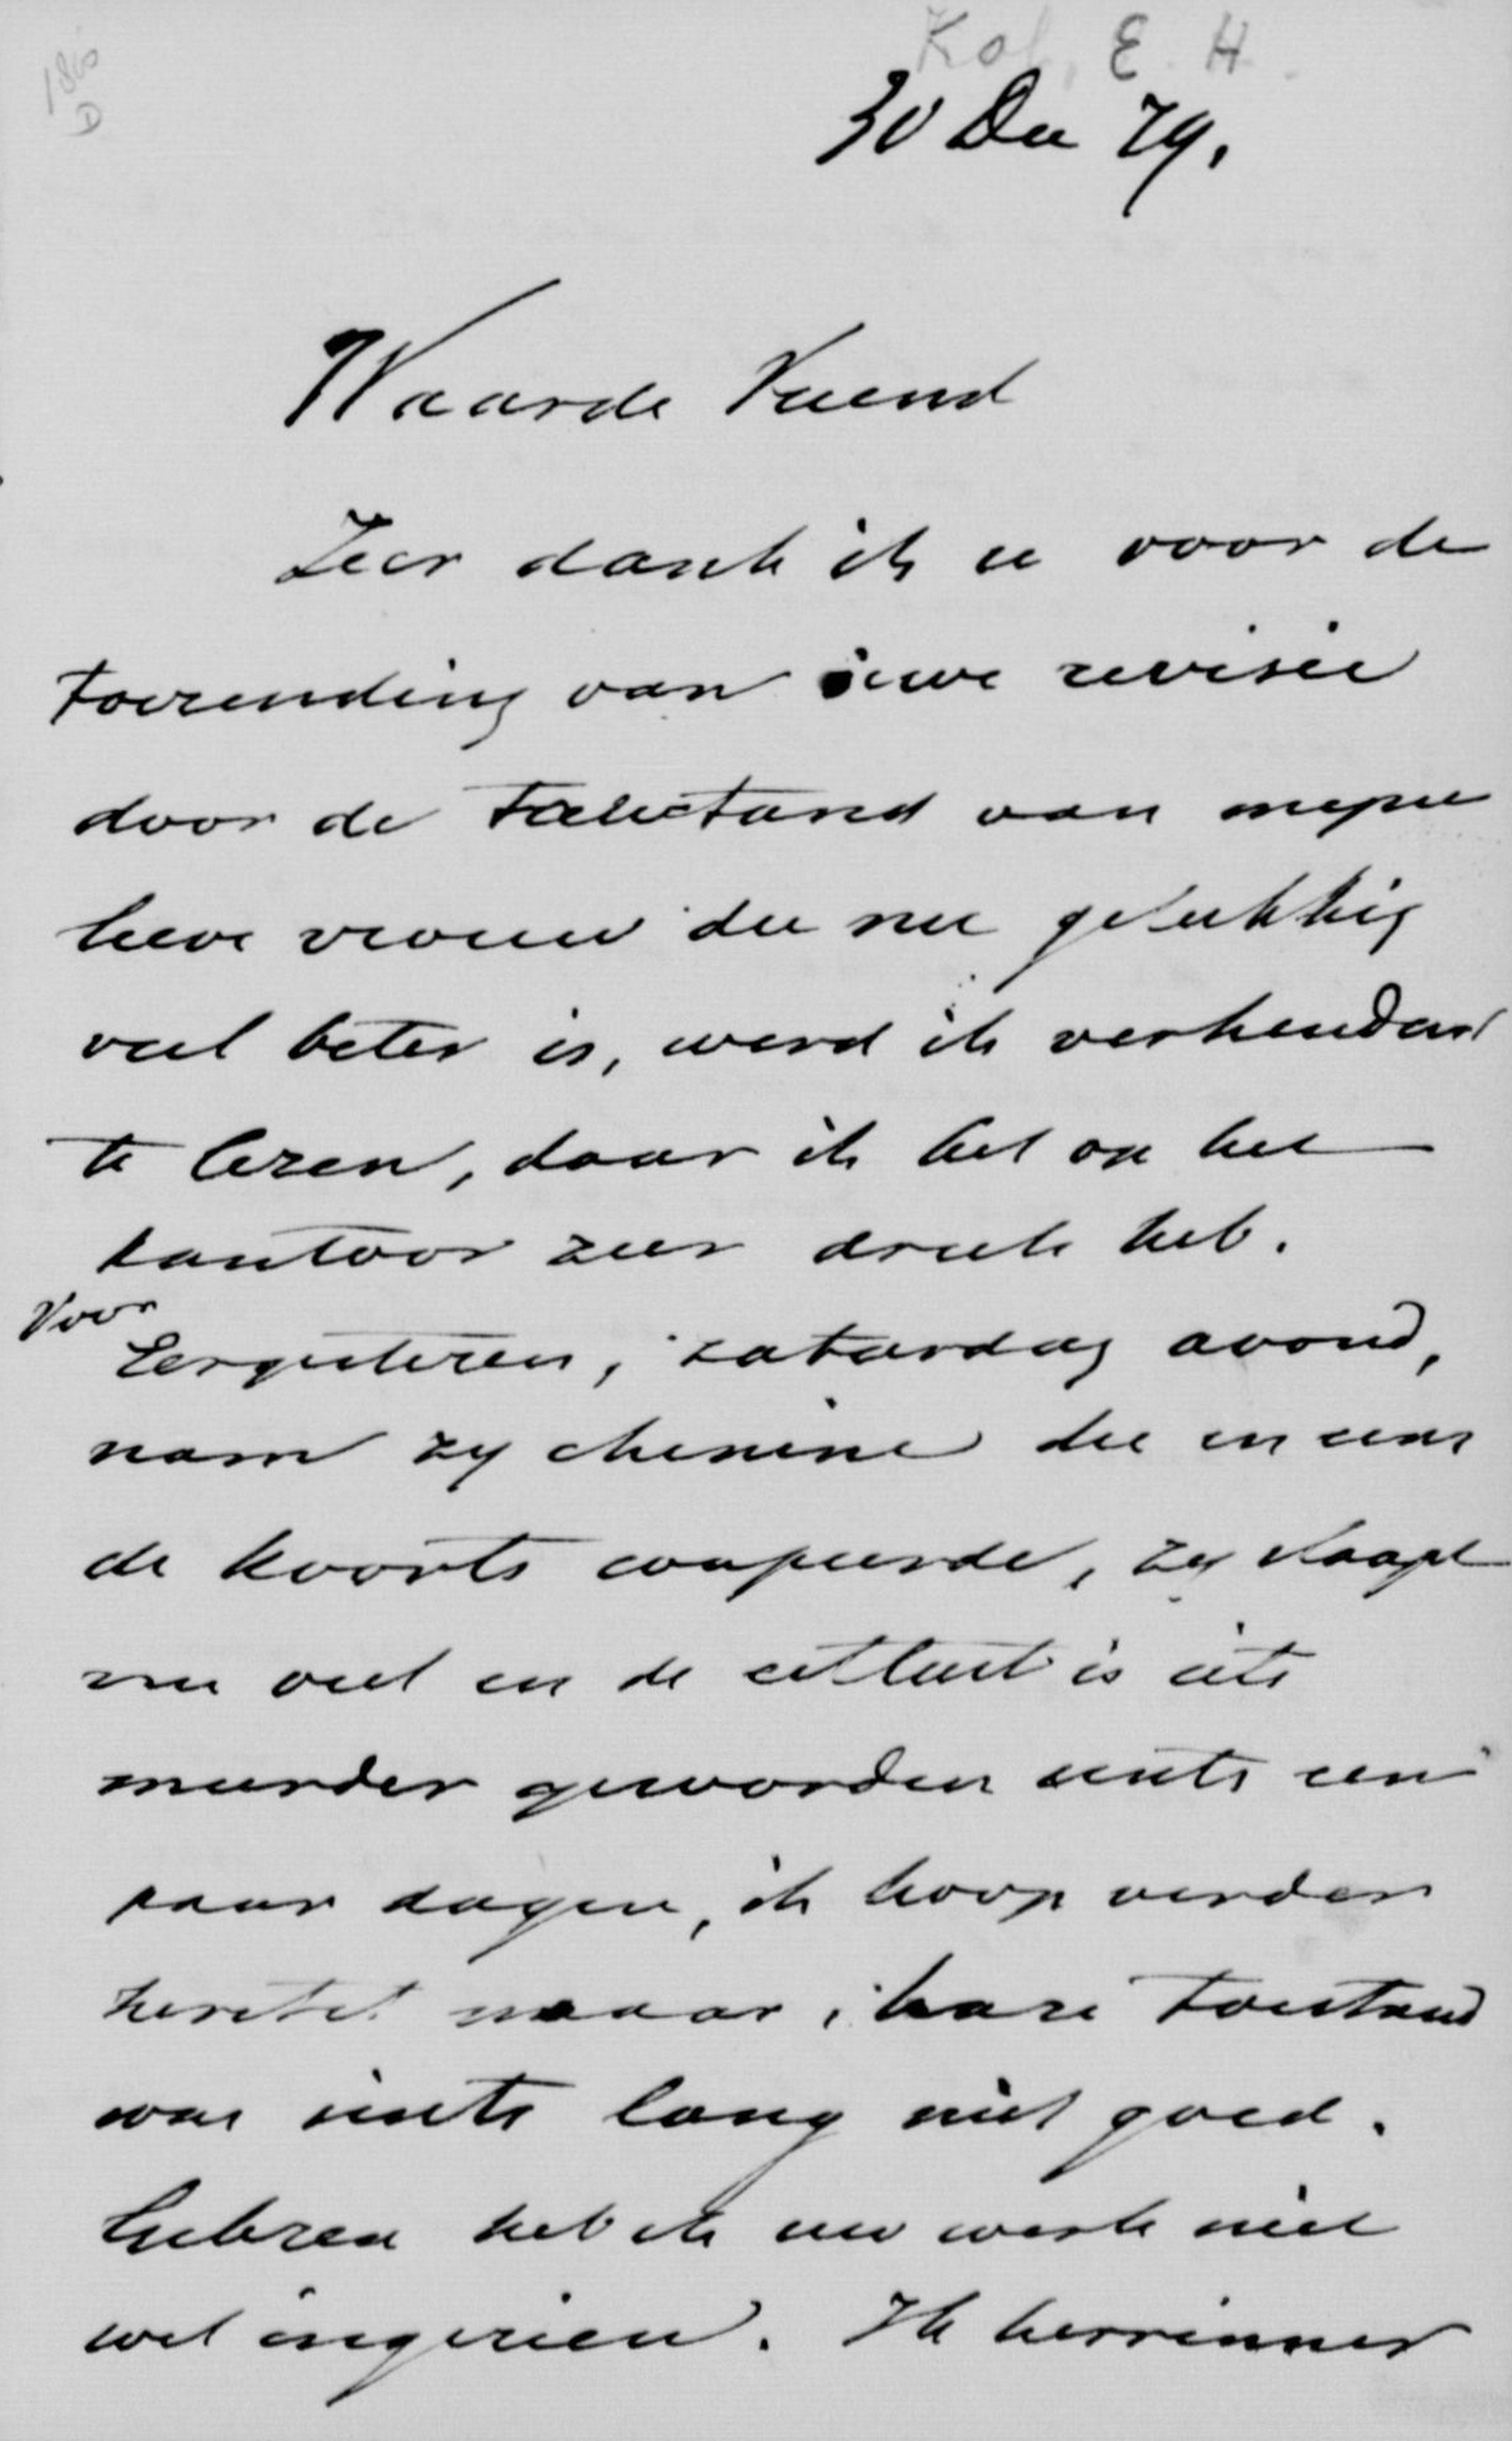 180
D
Kol, E. H.
30 Dec 79.
Waarde Vriend
Zeer dank ik u voor de
toezending van uwe revisie
door de toestand van mijne
lieve vrouw die nu gelukkig
veel beter is, werd ik verhinderd
te lezen, daar ik het op het
kantoor zeer druk heb.
Voor
Eergisteren, zaturdag avond,
nam zij chinine die in eens
de koorts coupeerde, zij slaapt
nu veel en de eetlust is iets
minder geworden sints een
paar dagen, ik hoop verder
herstel maar, hare toestand
was sints lang niet goed.
Gelezen heb ik uw werk niet
wel ingezien. Ik herrinner